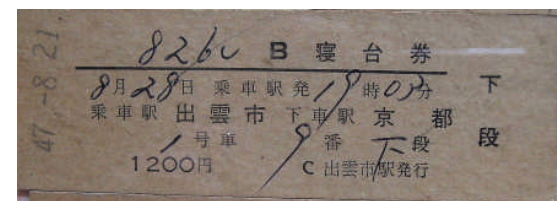 47.-8.21.
826レ B寝台券
8月28日 乗車駅発19時03分
乗車駅 出雲市 下車駅 京都
1号車 9番 下段
1200円 C出雲市駅発行
下段